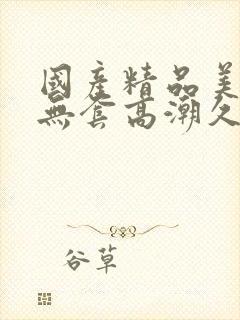 國產精品美
無套高潮久
谷草